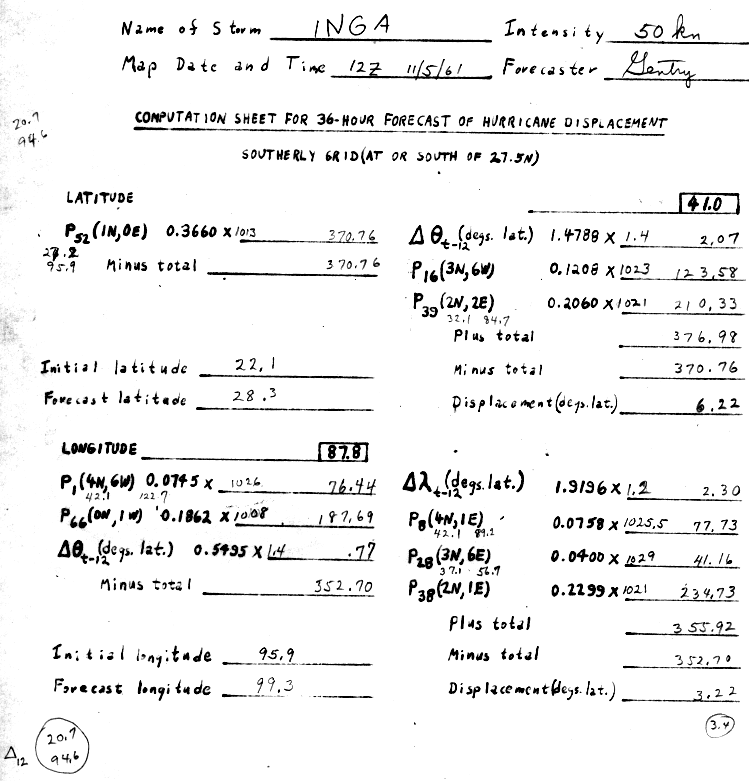 Name of Storm INGA Intensity 50 kn
Map Date and Time 12Z 11/5/61 Forecaster Gentry
20.7
94.6
COMPUTATION SHEET FOR 36-HOUR FORECAST OF HURRICANE DISPLACEMENT
SOUTHERLY GRID (AT OR SOUTH OF 27.5N)
LATITUDE
41.0
P52 (1N,0E) 0.3660 x 1013 370.76
95.9
Minus total 370.76
Δθt-12 (degs. lat.) 1.4788 x 1.4 2.07
P16 (3N,6W) 0.1208 x 1023 123.58
P39 (2N,2E) 0.2060 x 1021 210.33
32.1 84.7
Plus total 376.98
Initial latitude 22.1
Minus total 370.76
Forecast latitude 28.3
Displacement (degs. lat.) 6.22
LONGITUDE 87.8
P1 (4N,6W) 0.0745 x 1026 76.44
42.1 122.7
P66 (0N,1W) 0.1862 x 1008 187.69
Δθt-12 (degs. lat.) 0.5495 x 1.4 .77
Minus total 352.70
Δλt-12 (degs. lat.) 1.9196 x 1.2 2.30
P8 (4N,1E) 0.0758 x 1025.5 77.73
42.1 89.2
P28 (3N,6E) 0.0400 x 1029 41.16
37.1 56.7
P38 (2N,1E) 0.2299 x 1021 234.73
Plus total 355.92
Initial longitude 95.9
Minus total 352.70
Forecast longitude 99.3
Displacement (degs. lat.) 3.22
3.4
Δ12 20.7
94.6